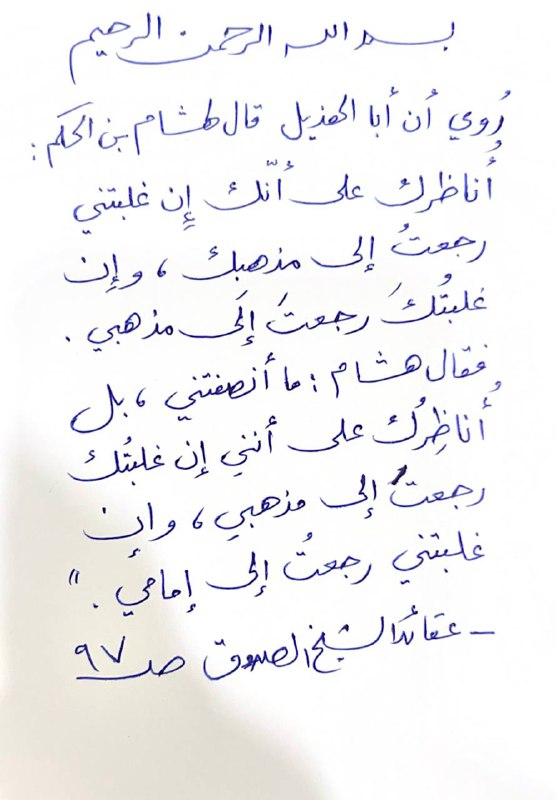 بسم الله الرحمن الرحيم
رُوي أن أبا الهذيل قال لهشام بن الحكم:
أُناظرك على أنّك إن غلبتني
رجعتُ إلى مذهبك، وإن
غلبتُكَ رجعتَ إلَى مذهبي.
فقال هشام: ما أنصفتني، بل
أُناظِرُك على أنني إن غلبتُك
رجعتَ إلى مذهبي، وإن
غلبتني رجعتُ إلى إمامي."
- عقائد الشيخ الصدوق صـ ٩٧